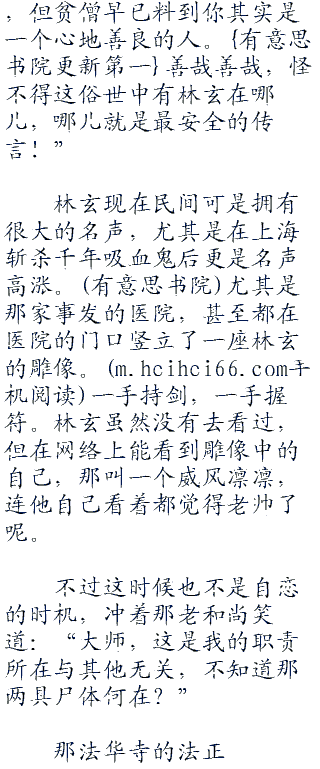 ，但贫僧早已料到你其实是
一个心地善良的人。{有意思
书院更新第一}善哉善哉，怪
不得这俗世中有林玄在哪
儿，哪儿就是最安全的传
言！”
林玄现在民间可是拥有
很大的名声，尤其是在上海
斩杀千年吸血鬼后更是名声
高涨。(有意思书院)尤其是
那家事发的医院，甚至都在
医院的门口竖立了一座林玄
的雕像。(m.hcihci66.com手
机阅读)一手持剑，一手握
符。林玄虽然没有去看过，
但在网络上能看到雕像中的
自己，那叫一个威风凛凛，
连他自己看着都觉得老帅了
呢。
不过这时候也不是自恋
的时机，冲着那老和尚笑
道：“大师，这是我的职责
所在与其他无关，不知道那
两具尸体何在？”
那法华寺的法正